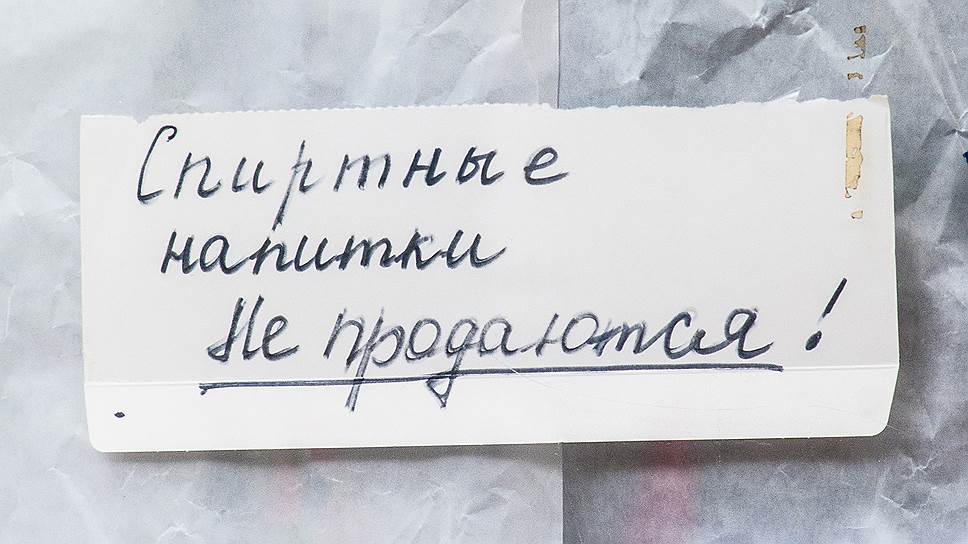 Спиртные
напитки
Не продаются!